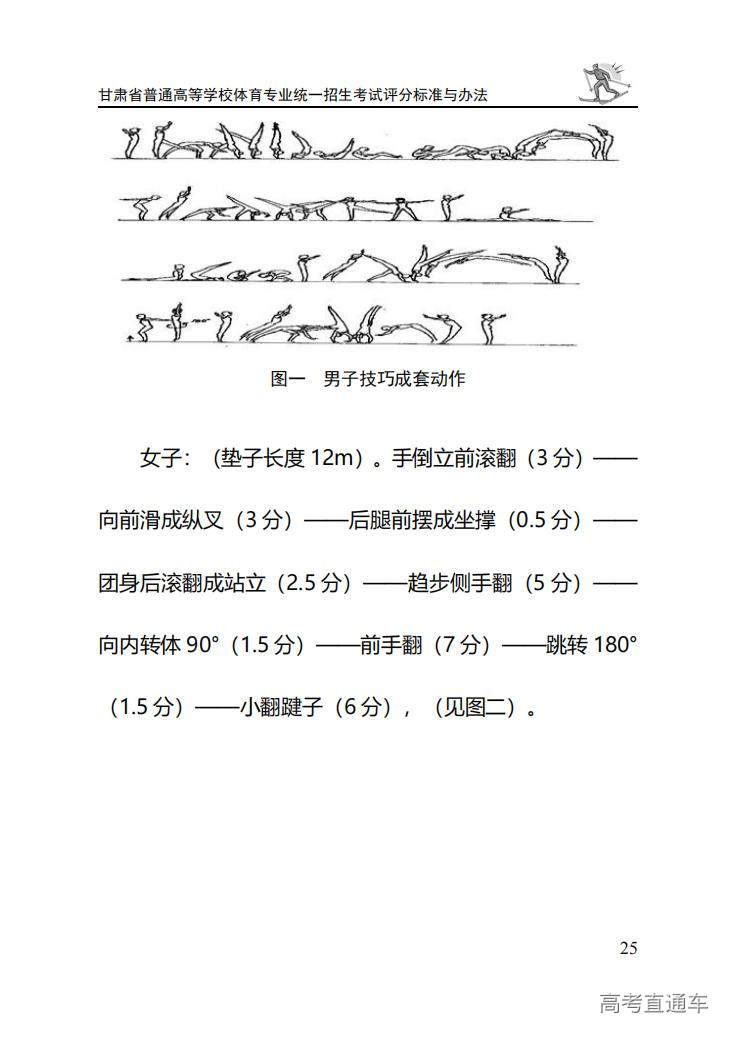 甘肃省普通高等学校体育专业统一招生考试评分标准与办法
图一 男子技巧成套动作
女子：（垫子长度 12m）。手倒立前滚翻（3 分）——
向前滑成纵叉（3 分）——后腿前摆成坐撑（0.5 分）——
团身后滚翻成站立（2.5 分）——趋步侧手翻（5 分）——
向内转体 90°（1.5 分）——前手翻（7 分）——跳转 180°
（1.5 分）——小翻踺子（6 分），（见图二）。
25
高考直通车